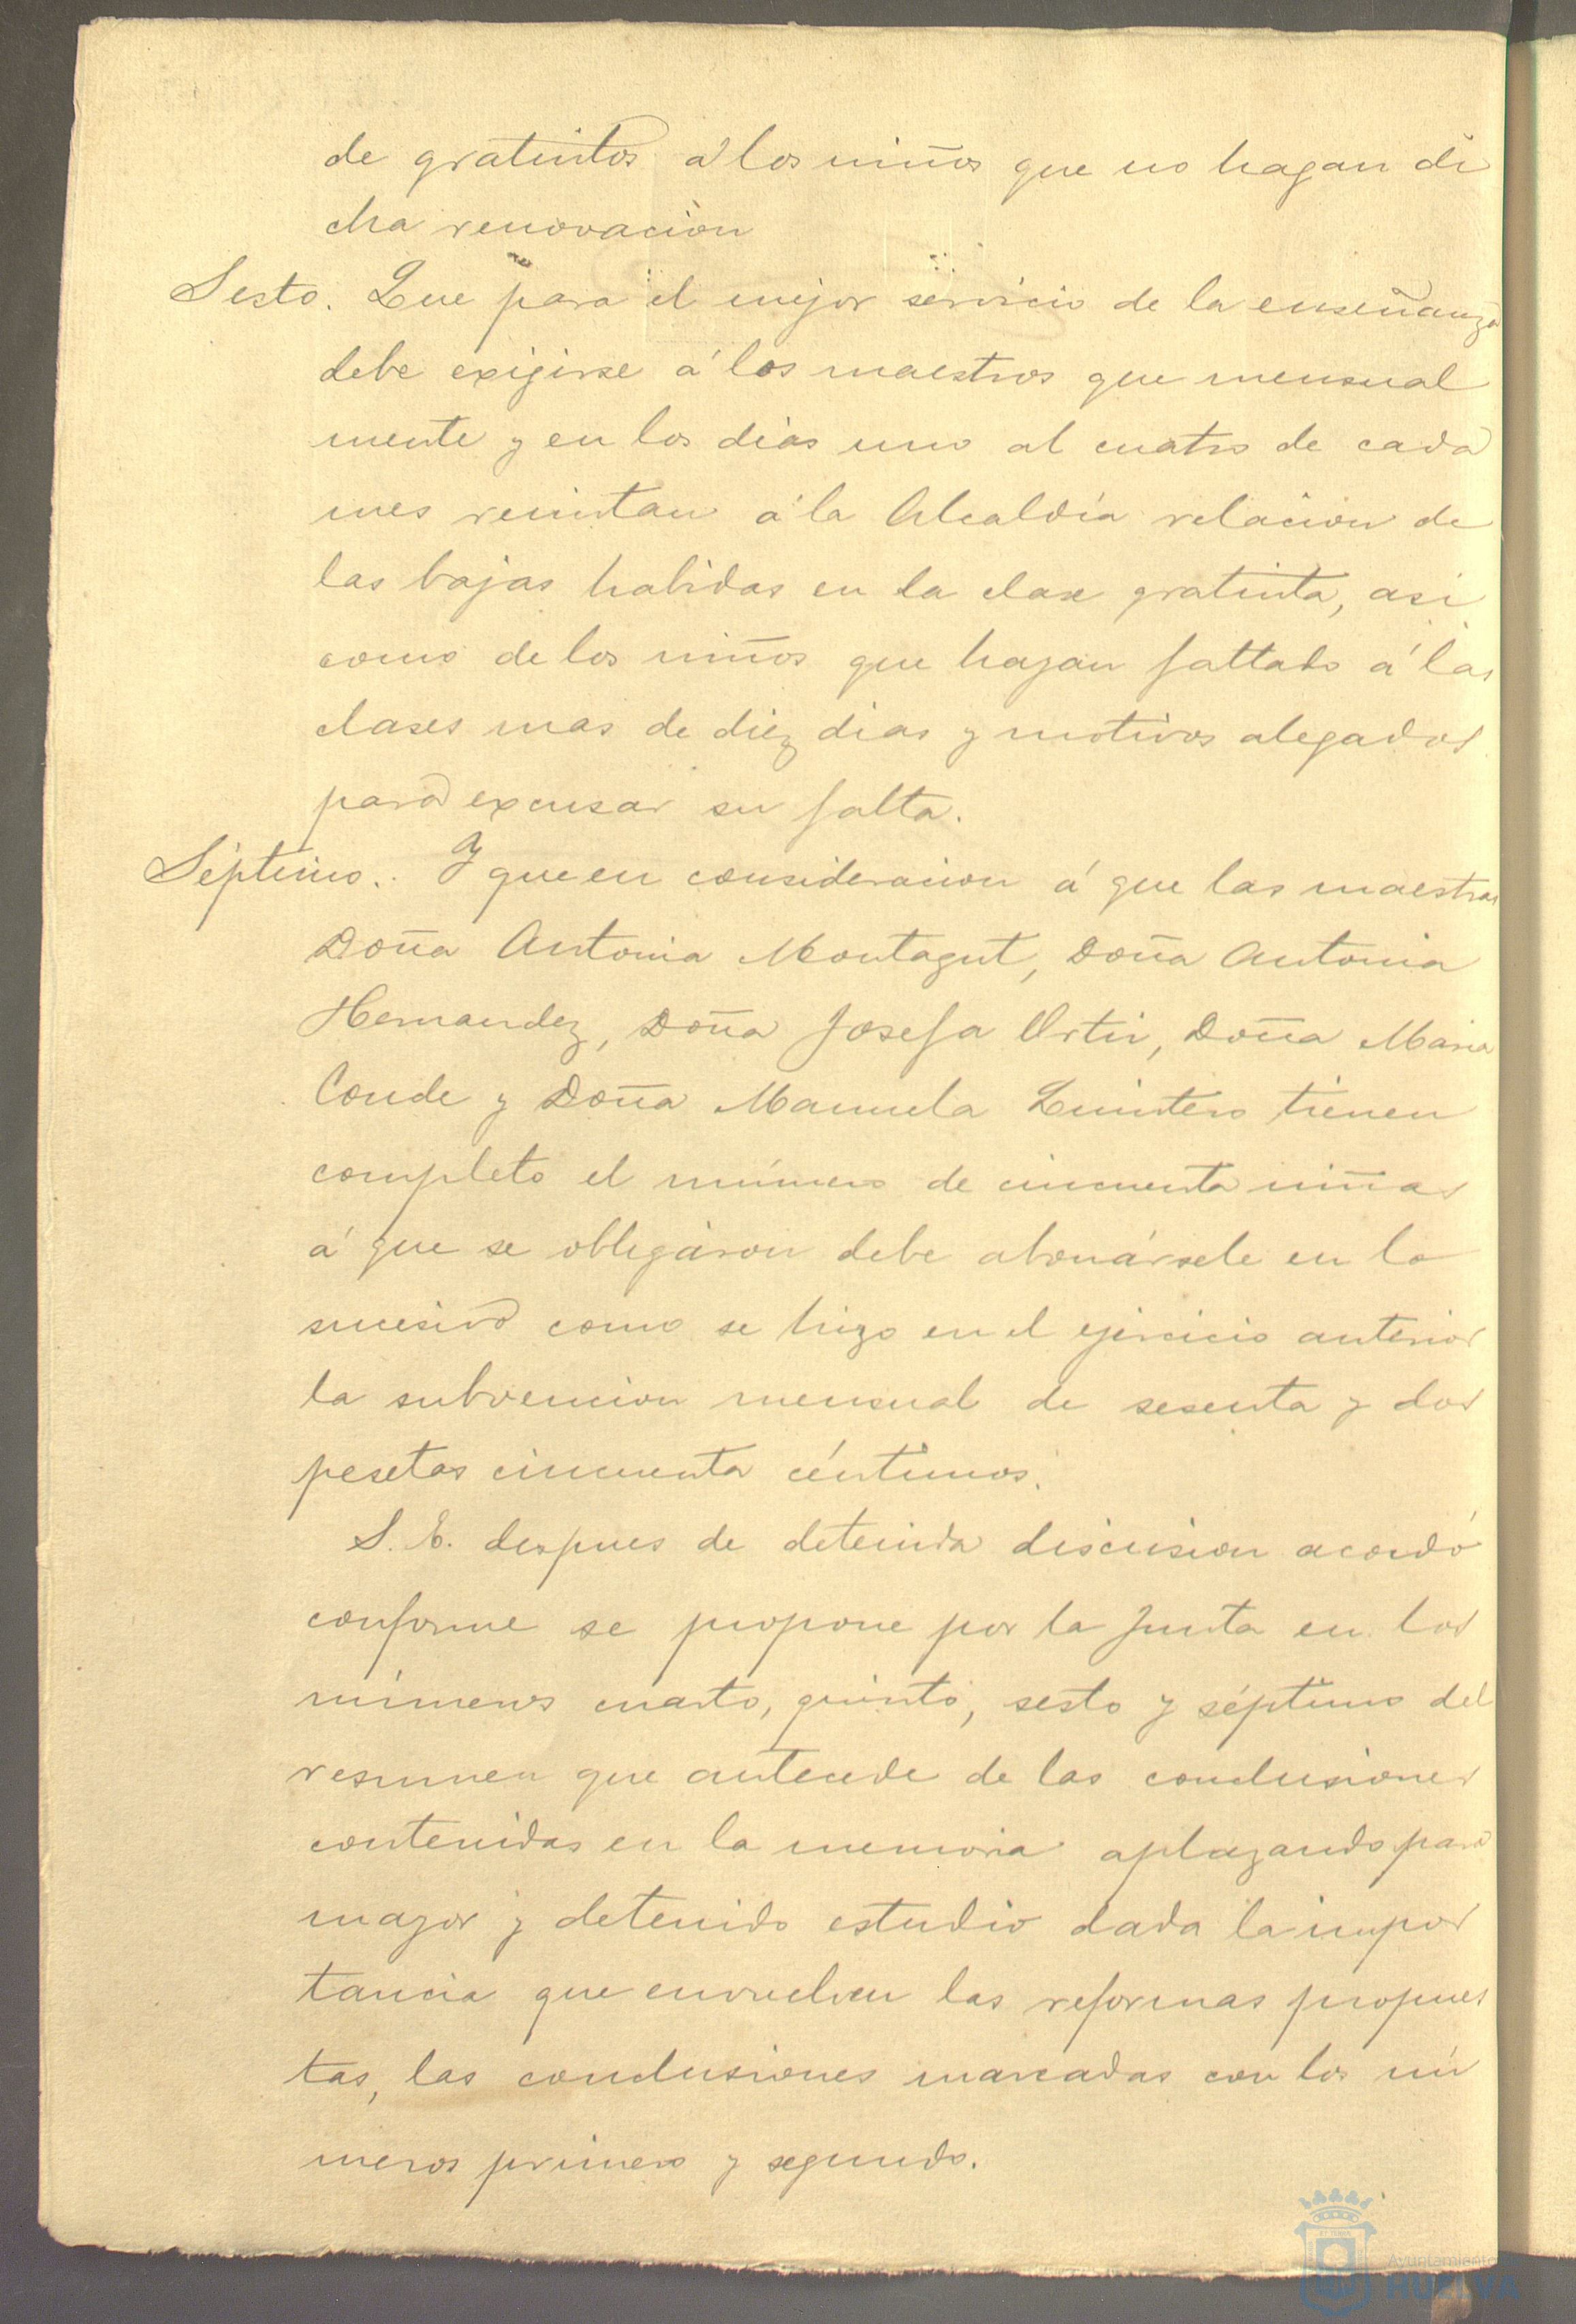 de gratuitos á los niños que no hagan di
cha renovacion
Sesto. Que para el mejor servicio de la enseñanza
debe exigirse á los maestros que mensual
mente y en los dias uno al cuatro de cada
mes remitan á la Alcaldía relacion de
las bajas habidas en la clase gratuita, asi
como de los niños que hayan faltado á las
clases mas de diez dias y motivos alegados
para excusar su falta.
Séptimo. Y que en consideracion á que las maestras
Doña Antonia Montagut, Doña Antonia
Hernandez, Doña Josefa Ortiz, Doña Maria
Conde y Doña Manuela Quintero tienen
completo el número de cincuenta niñas
á que se obligaron debe abonársele en lo
sucesivo como se hizo en el ejercicio anterior
la subvencion mensual de sesenta y dos
pesetas cincuenta céntimos.
S. E. despues de detenida discusion acordó
conforme se propone por la Junta en los
números cuarto, quinto, sesto y séptimo del
resumen que antecede de las conclusiones
contenidas en la memoria aplazando para
mayor y detenido estudio dada la impor
tancia que envuelven las reformas propues
tas, las conclusiones marcadas con los nú
meros primero y segundo.
Ayuntamiento
HUELVA